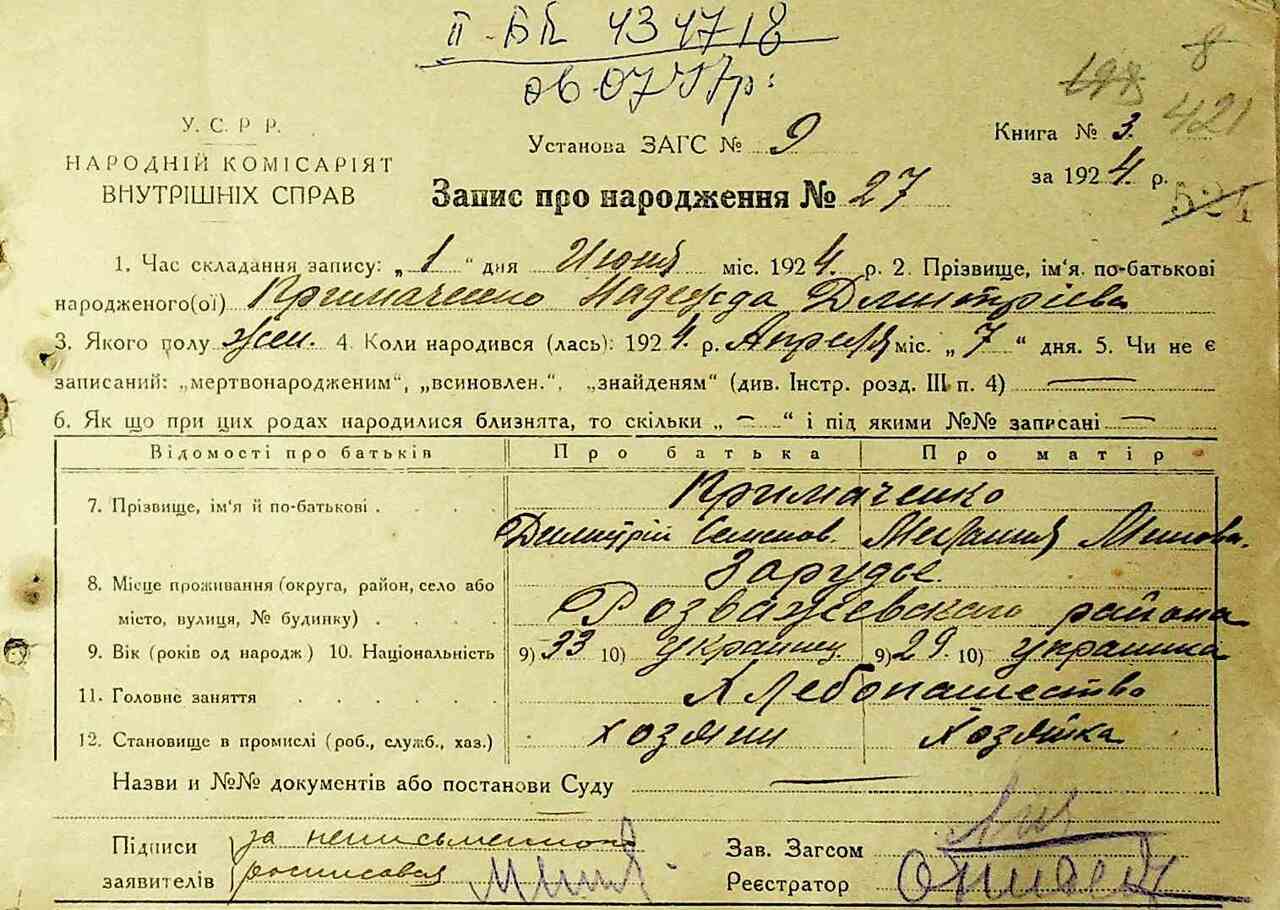 II-БК 434718
06.07.57р:
198 8
421
524
У.С.Р.Р.
НАРОДНІЙ КОМІСАРІЯТ
ВНУТРІШНІХ СПРАВ
Установа ЗАГС № 9
Книга № 3.
за 1924 р.
Запис про народження № 27
1. Час складання запису: „1“ дня Июня міс. 1924. р. 2. Прізвище, ім'я. по-батькові
народженого(ої) Примаченко Надежда Дмитріева
3. Якого полу жен. 4. Коли народився (лась): 1924. р. Апреля міс. „7“ дня. 5. Чи не є
записаний: „мертвонародженим“, „всиновлен.“, „знайденям“ (див. Інстр. розд. III п. 4) —
6. Як що при цих родах народилися близнята, то скільки „—“ і під якими №№ записані —
Відомості про батьків Про батька Про матір
7. Прізвище, ім'я й по-батькові . . . . Примаченко
Димитрій Семенов. Мелания Минова.
8. Місце проживання (округа, район, село або Зарудье.
місто, вулиця, № будинку) . . . . Розважевского района
9. Вік (років од народж) 10. Національність 9) 33 10) украинец 9) 29 10) украинка
11. Головне заняття . . . . . Хлебопашество
12. Становище в промислі (роб., служб., хаз.) хозяин Хозяйка
Назви и №№ документів або постанови Суду —
Підписи за неписьменного
заявителів росписовся
Зав. Загсом
Реєстратор